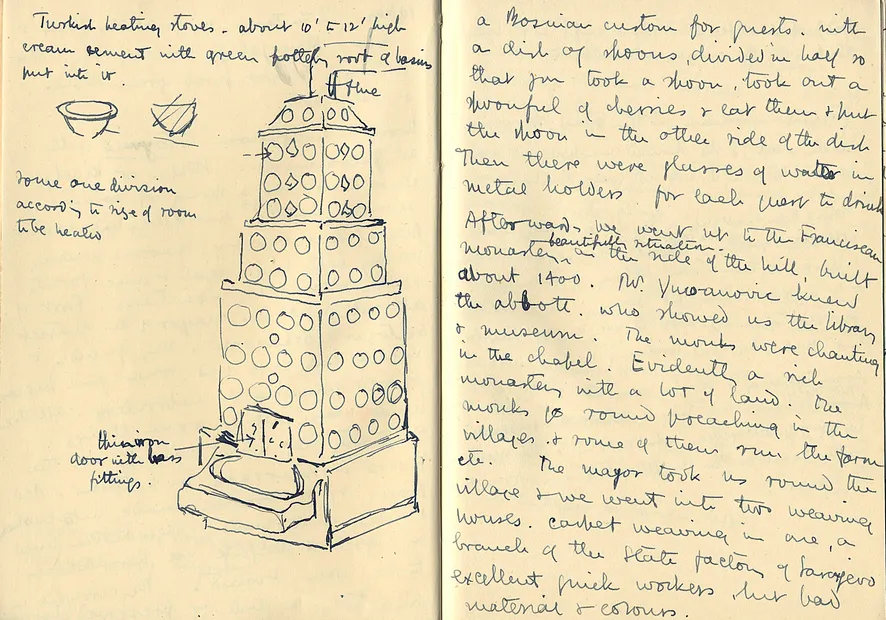 Turkish heating stoves - about 10' to 12' high
cream cement with green pottery root of basins
put into it
flue
some one division
according to size of room
to be heated
thin iron
door with brass
fittings.
a Bosnian custom for guests. with
a dish of spoons, divided in half so
that you took a spoon, took out a
spoonful of cherries & eat them & put
the spoon in the other side of the dish
Then there were glasses of water in
metal holders for each guest to drink
Afterwards we went up to the Franciscan
beautifully situation.
monastery, on the side of the hill, built
about 1400. Mr. knew
the abbott. who showed us the library
& museum. The monks were chanting
in the chapel. Evidently a rich
monastery with a lot of land. The
monks go round preaching in the
villages. & some of them run the farm
etc. The mayor took us round the
village & we went into two weaving
houses. carpet weaving in one, a
branch of the State factory of Sarajevo
excellent quick workers, but bad
material & colours.